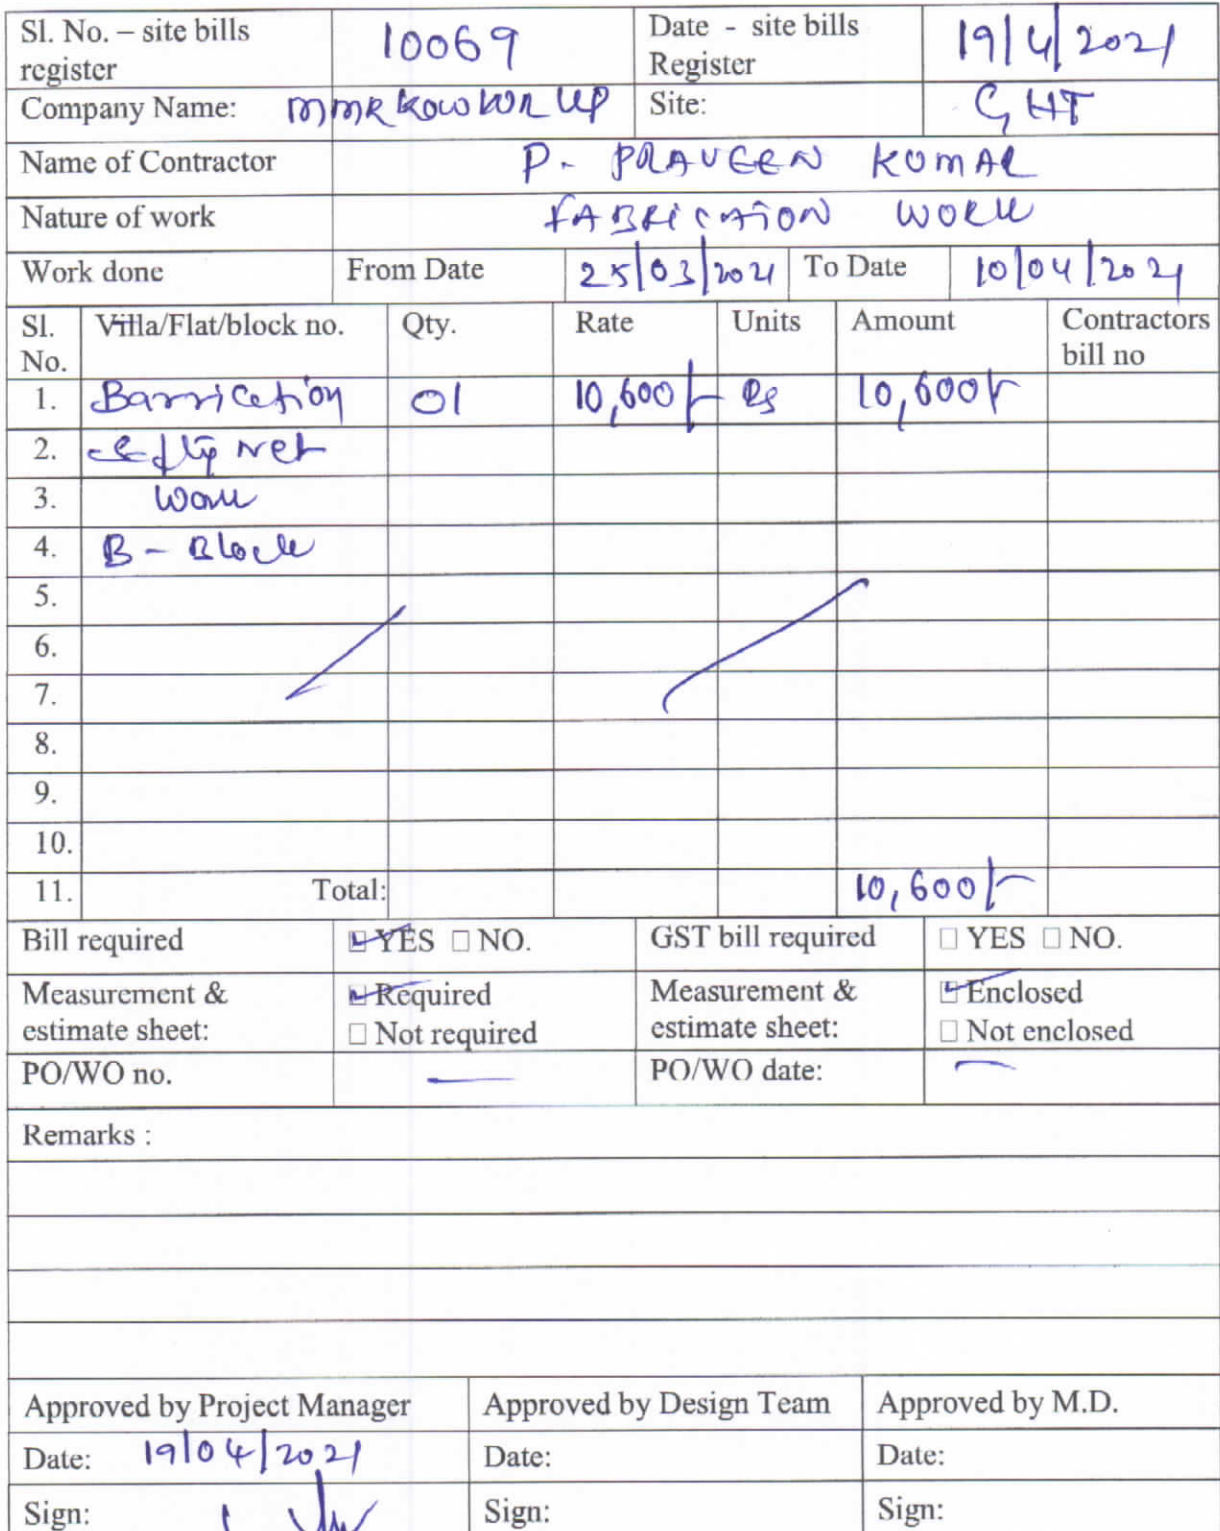 Sl. No. – site bills register 10069 Date - site bills Register 19/4/2021
Company Name: Site: GHT
Name of Contractor P. PRAVEEN KUMAR
Nature of work FABRICATION WORK
Work done From Date 25/03/2021 To Date 10/04/2021
Sl. No. Villa/Flat/block no. Qty. Rate Units Amount Contractors bill no
1. Barrication 01 10,600/- 10,600/-
2. Net
3. Work
4. B - Block
5.
6.
7.
8.
9.
10.
11. Total: 10,600/-
Bill required YES NO. GST bill required YES NO.
Measurement & estimate sheet: Required Not required Measurement & estimate sheet: Enclosed Not enclosed
PO/WO no. — PO/WO date: —
Remarks :
Approved by Project Manager Approved by Design Team Approved by M.D.
Date: 19/04/2021 Date: Date:
Sign: Sign: Sign: